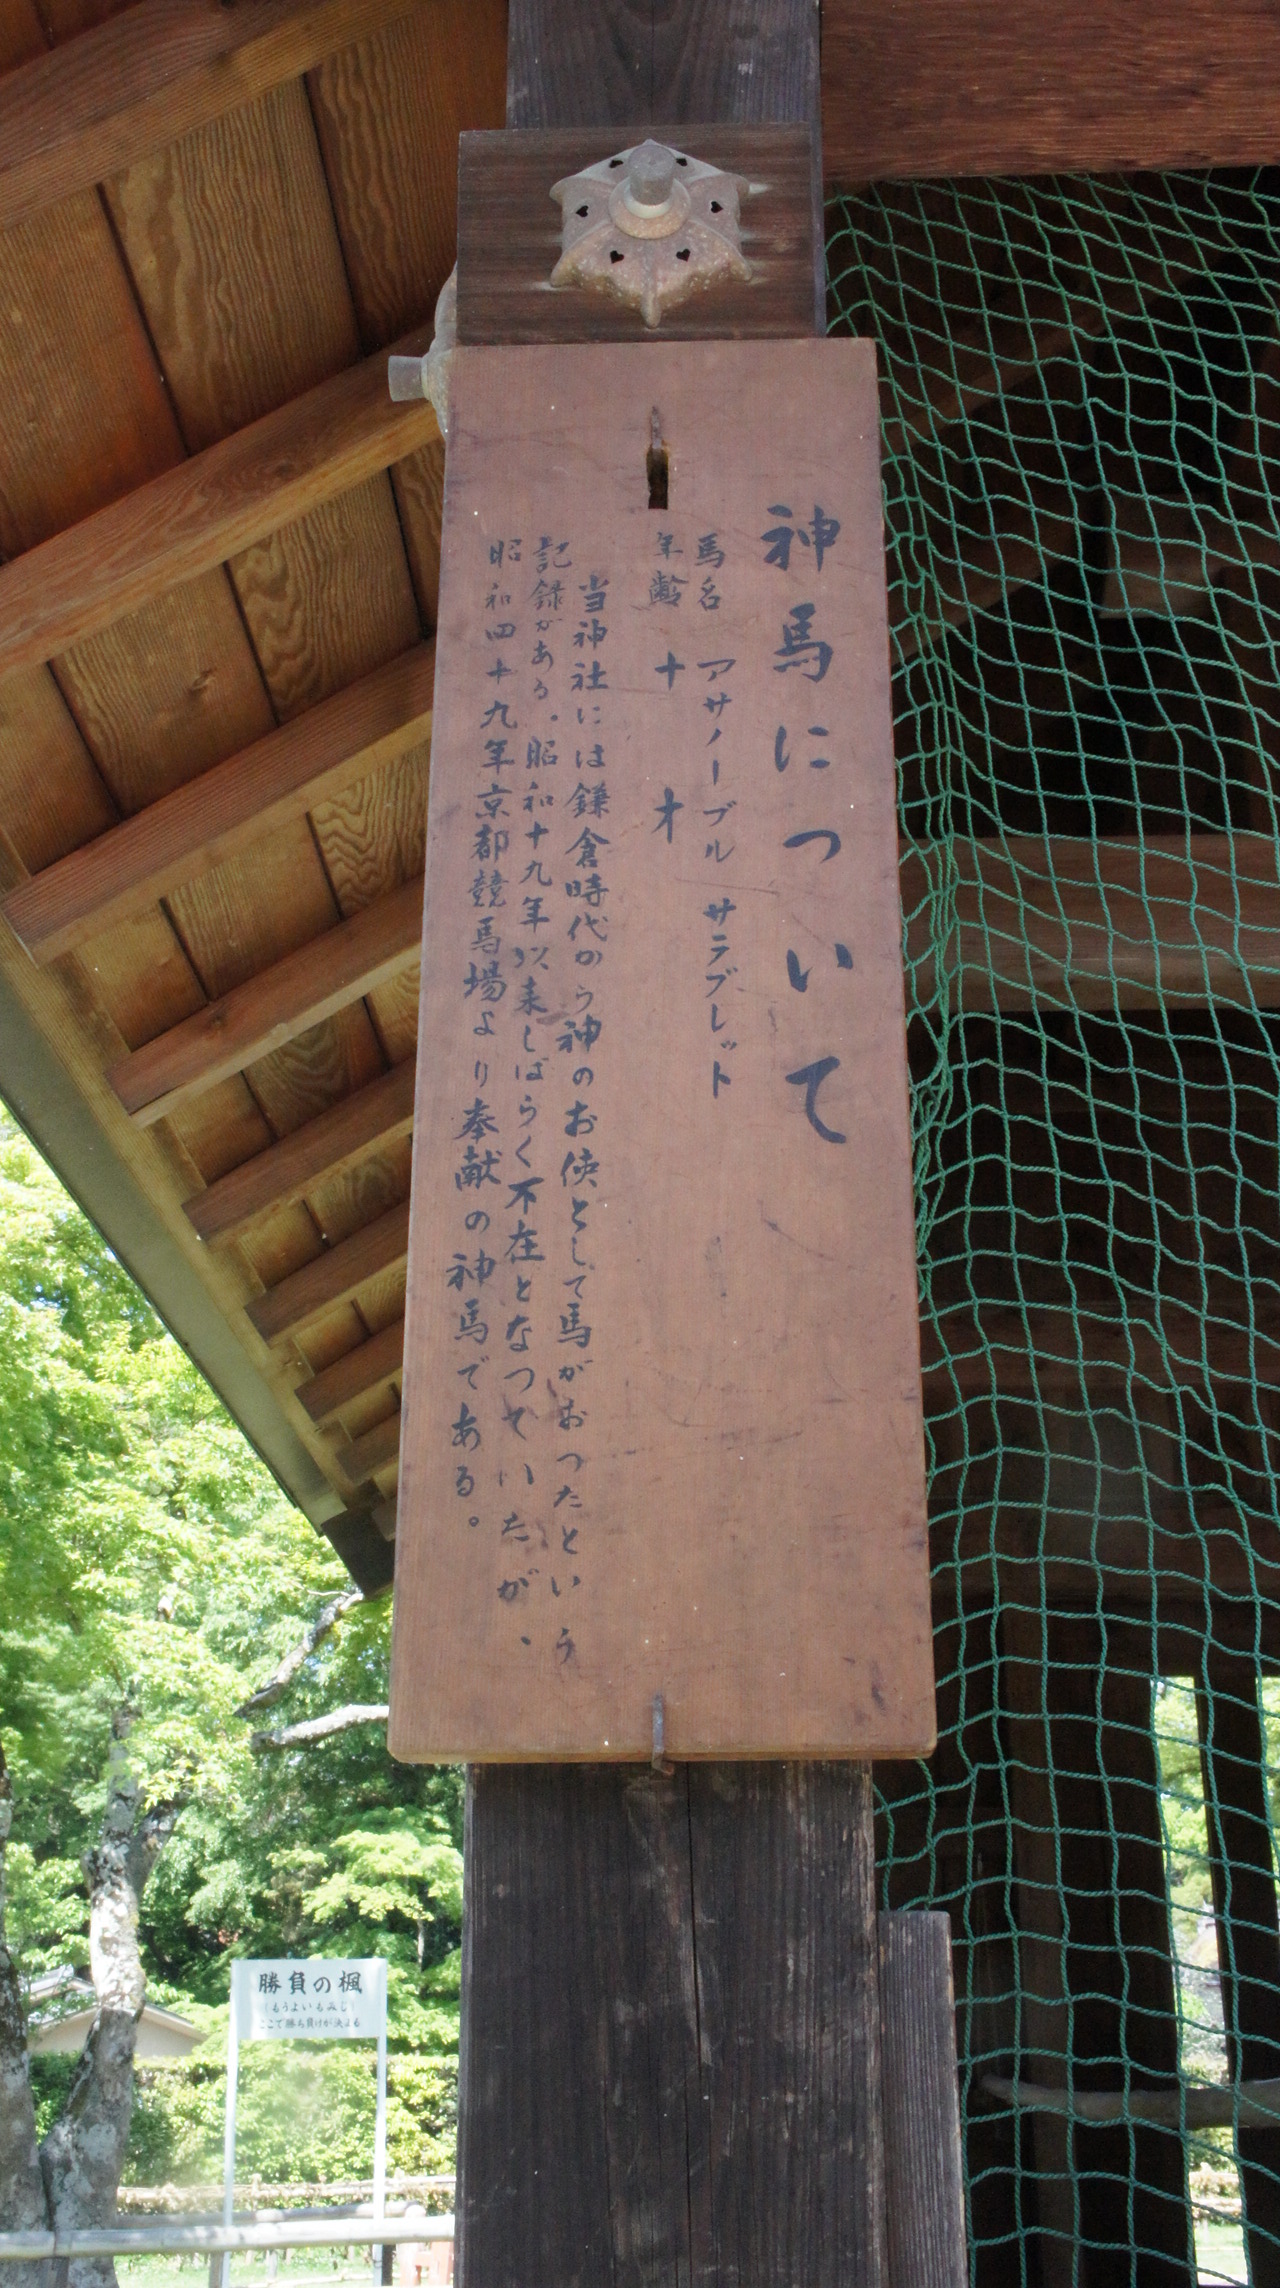 神馬について
馬名 アサノーブル サラブレット
年齢 十才
当神社には鎌倉時代から神のお使として馬がおつたという
記録がある。昭和十九年以来しばらく不在となつていたが、
昭和四十九年京都競馬場より奉献の神馬である。
勝負の楓
ここで勝ち負けが決まる